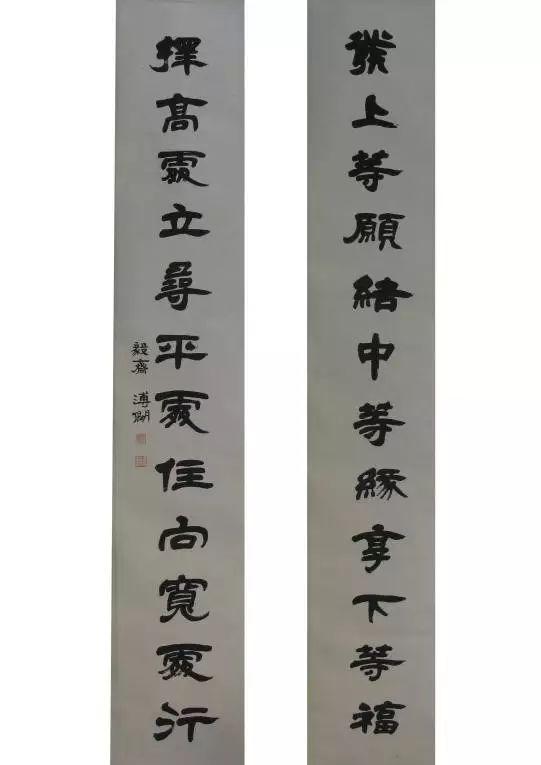 發上等願結中等緣享下等福
擇高處立尋平處住向寬處行
毅齋 溥僩